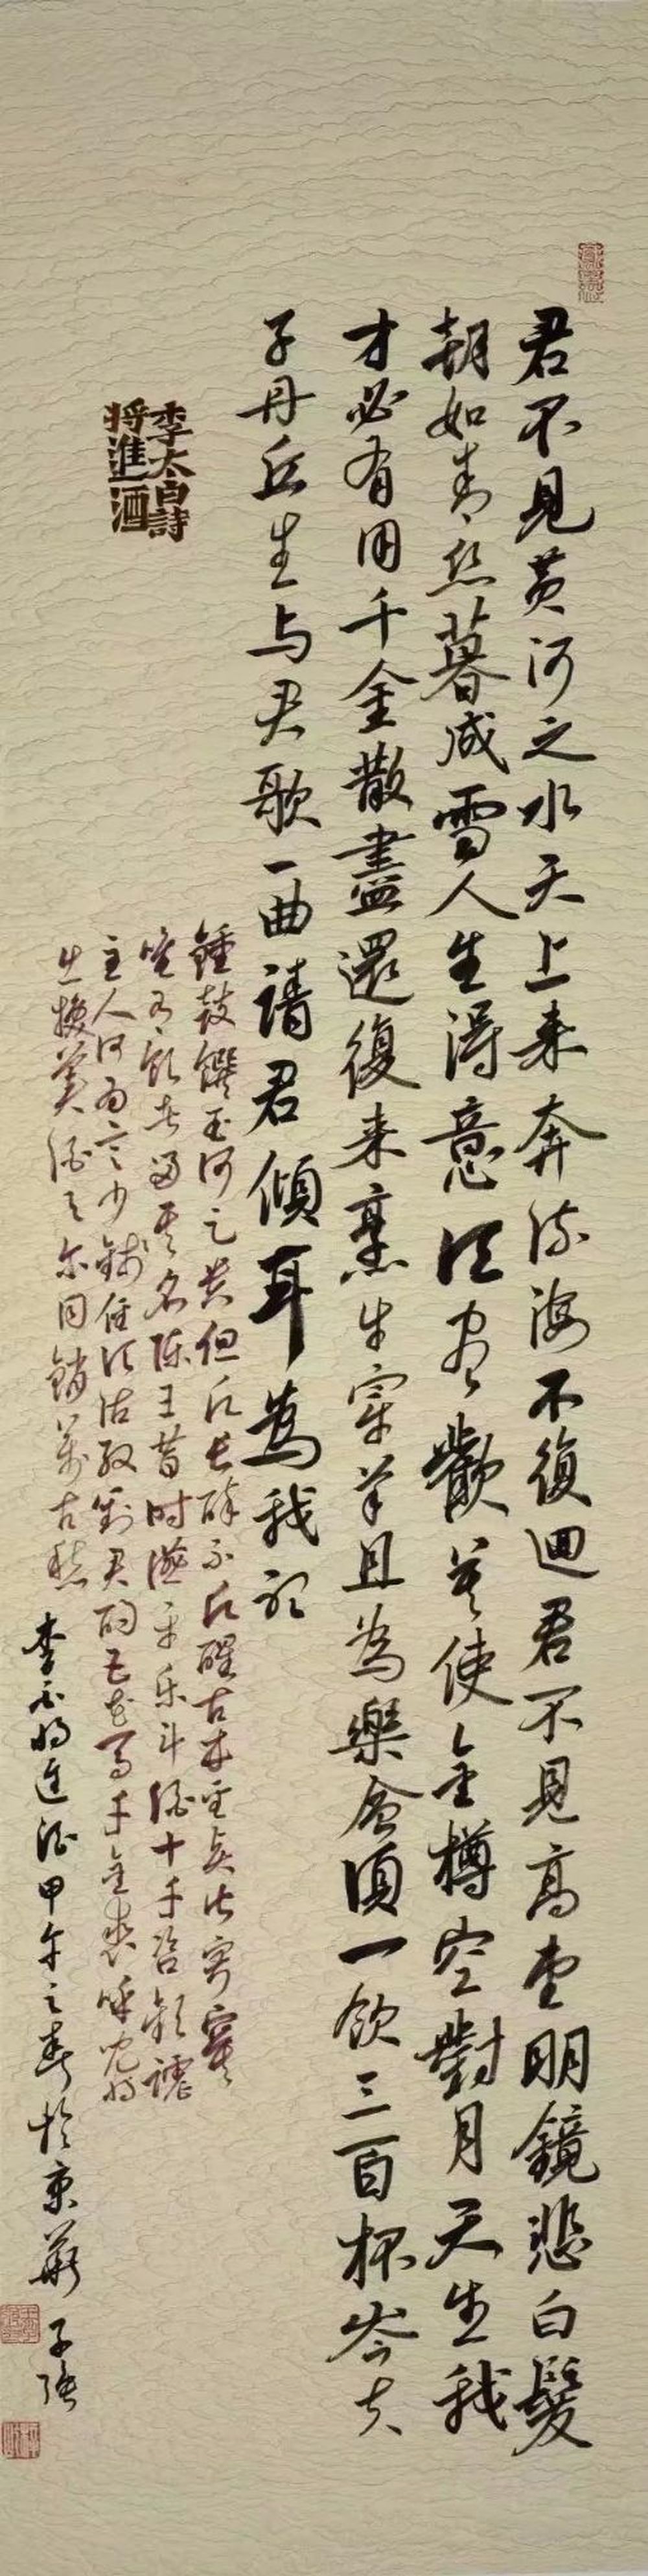 君不見黄河之水天上来奔流海不復迴君不見高堂明鏡悲白髮
朝如青丝暮成雪人生得意须尽歡莫使金樽空對月天生我
才必有用千金散盡還復来烹牛宰羊且為樂會須一飲三百杯岑夫
子丹丘生与君歌一曲請君傾耳為我听
李太白詩
將進酒
鍾鼓饌玉何足贵但願长醉不願醒古来圣贤皆寂寞
惟有飲者留其名陈王昔时讌平乐斗酒十千恣歡謔
主人何为言少錢径须沽取對君酌五花馬千金裘呼児將
出换美酒与尔同銷萬古愁
李白將進酒甲午之春於京華子强